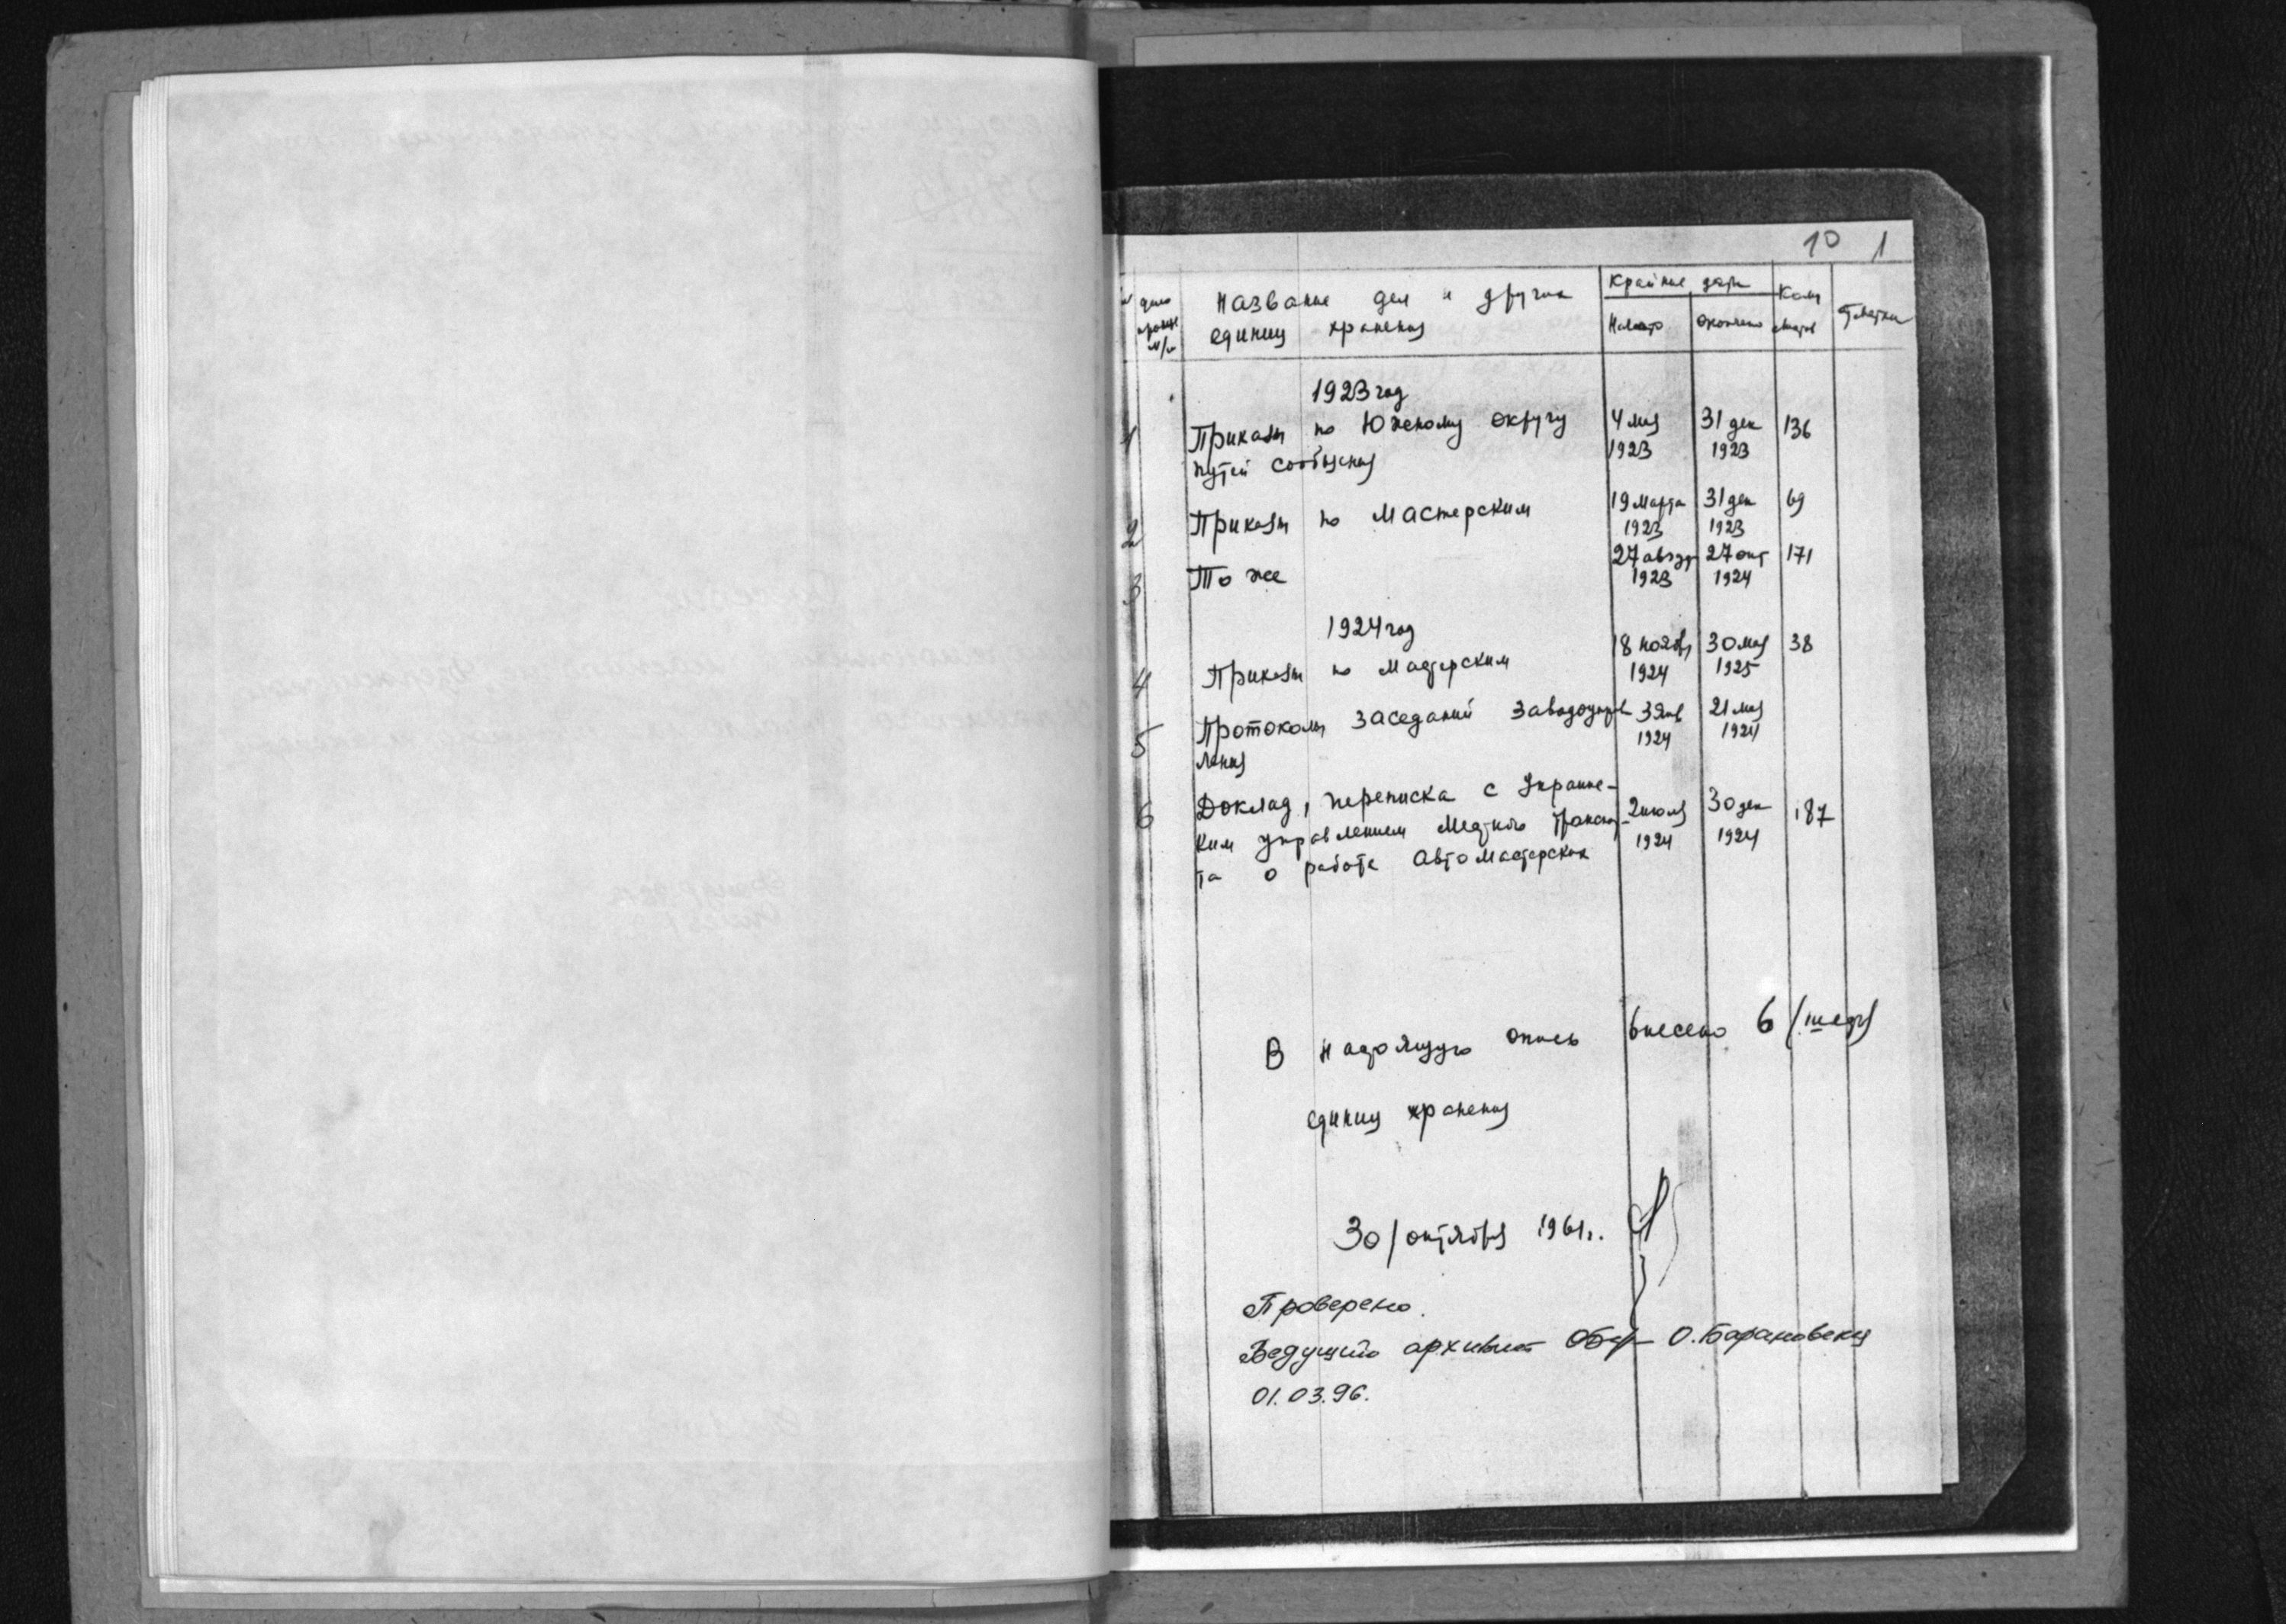 10 1
дела
Название дел и других
единиц хранения
Крайние даты
Начато
окончено
Кол
1923 год
1 Приказы по Южному округу 4 мая 31 дек 136
путей сообщения 1923 1923
2 Приказы по Мастерским 19 марта 31 дек 69
1923 1923
3 То же 27 август 27 окт 171
1923 1924
1924 год
4 Приказы по Мастерским 18 ноября 30 мая 38
1924 1925
5 Протоколы заседаний заводоуправ 3 янв 21 мая
ления 1924 1924
6 Доклад, переписка с Украинс-
ким управлением Местного транспор- 2 июля 30 дек 187
та о работе Автомастерских 1924 1924
В настоящую опись внесено 6 (шесть)
единиц хранения
30/октября 1961 г.
Проверено.
Ведущий архивист О. Барановская
01.03.96.